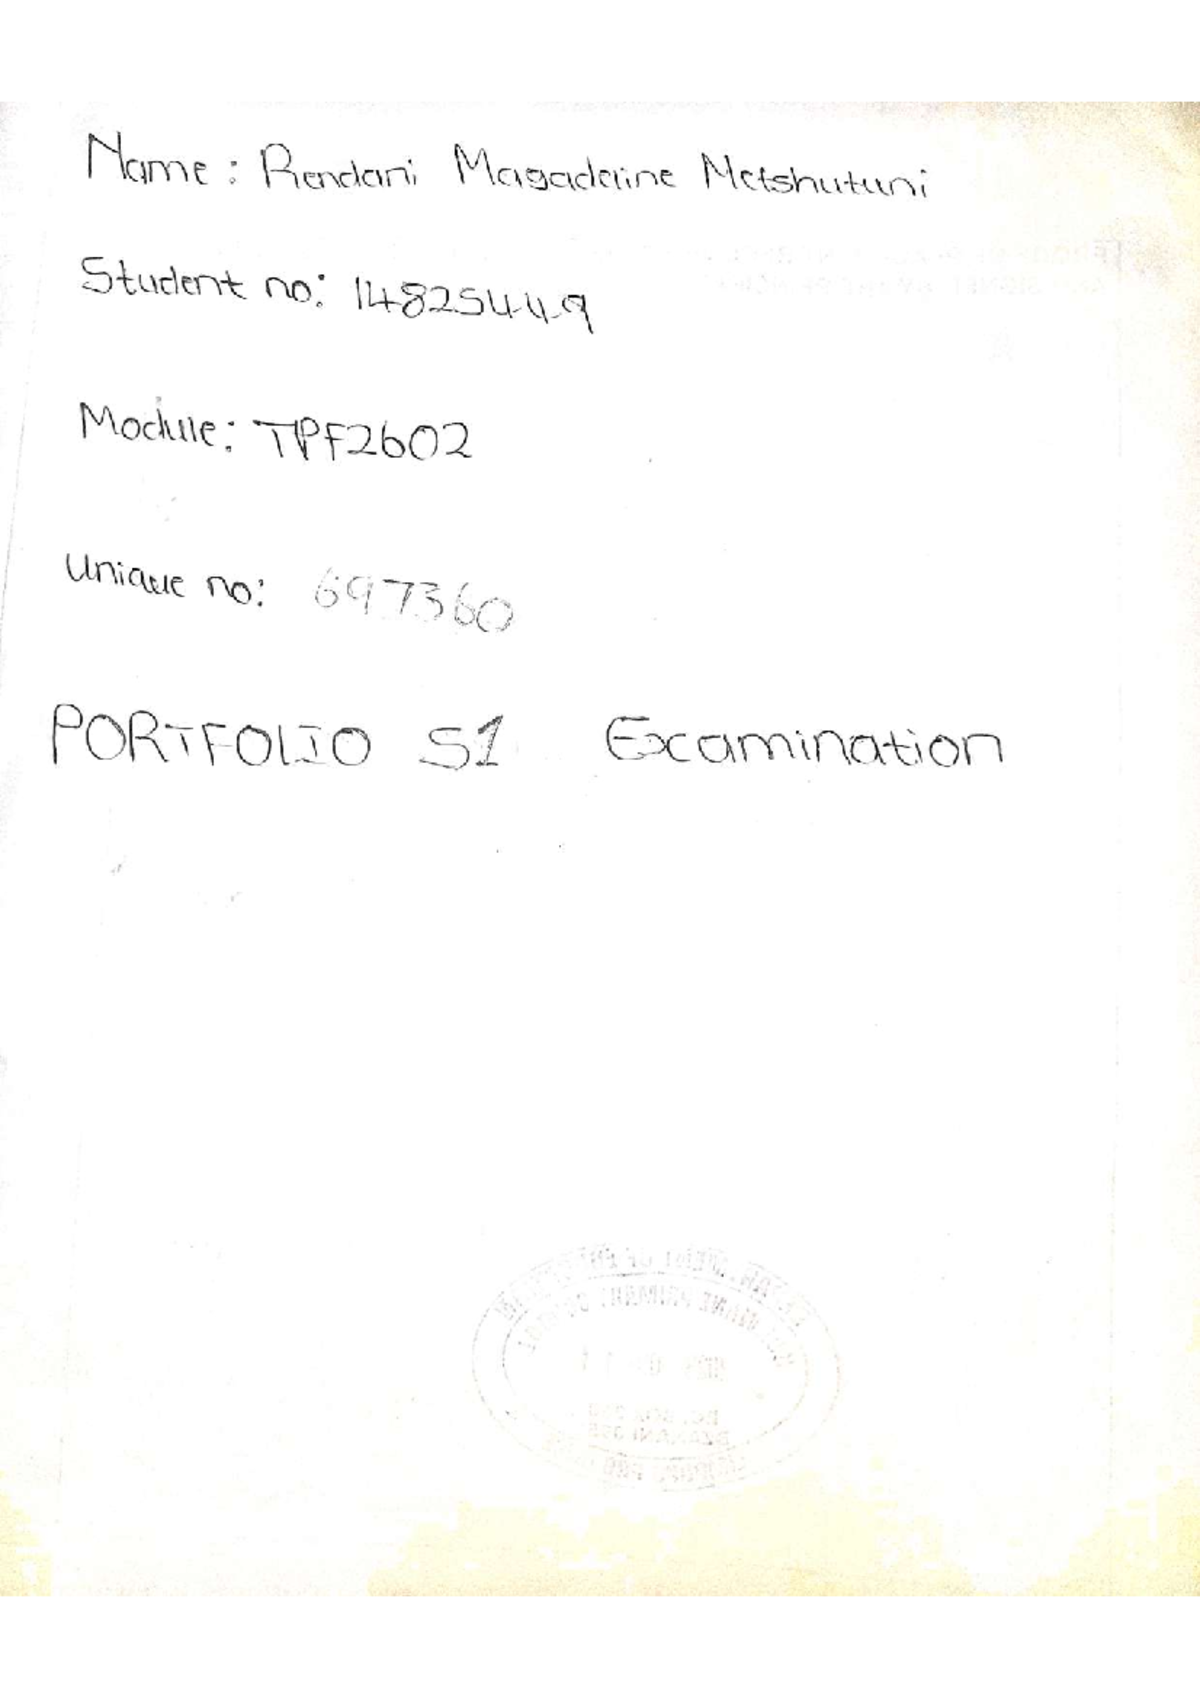 Name : Rendani Magaderine Metshutuni
Student no: 14825449
Module: TPF2602
Unique no: 697360
PORTFOLIO S1 Examination